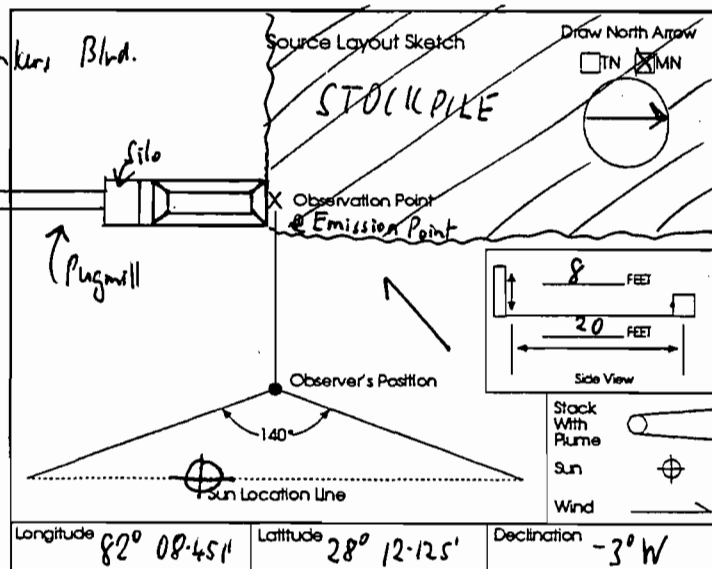 Blvd.
Source Layout Sketch
Draw North Arrow
TN X MN
STOCKPILE
Silo
X Observation Point
@ Emission Point
Pugmill
8 FEET
20 FEET
Side View
Observer's Position
140°
Stack
With
Plume
Sun
Sun Location Line
Wind
Longitude 82° 08.451'
Latitude 28° 12.125'
Declination -3° W